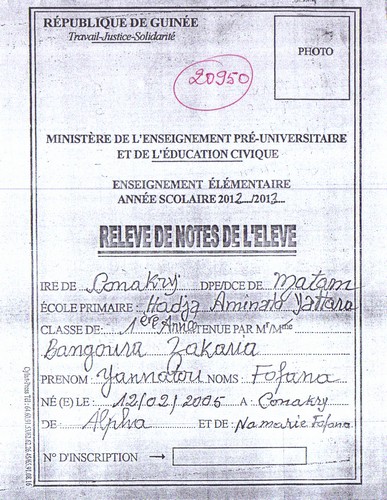 RÉPUBLIQUE DE GUINÉE
Travail-Justice-Solidarité
PHOTO
20950
MINISTÈRE DE L'ENSEIGNEMENT PRÉ-UNIVERSITAIRE
ET DE L'ÉDUCATION CIVIQUE
ENSEIGNEMENT ÉLÉMENTAIRE
ANNÉE SCOLAIRE 2012/2013
RELEVE DE NOTES DE L'ELEVE
IRE DE Conakry DPE/DCE DE Matam
ÉCOLE PRIMAIRE : Hadja Aminata Yattara
CLASSE DE : 1ère Année TENUE PAR Mr/Mme
Bangoura Zakaria
PRENOM Yannatou NOMS Fofana
NÉ (E) LE : 12/02/2005 A : Conakry
DE : Alpha ET DE : Namarie Fofana
N° D'INSCRIPTION →